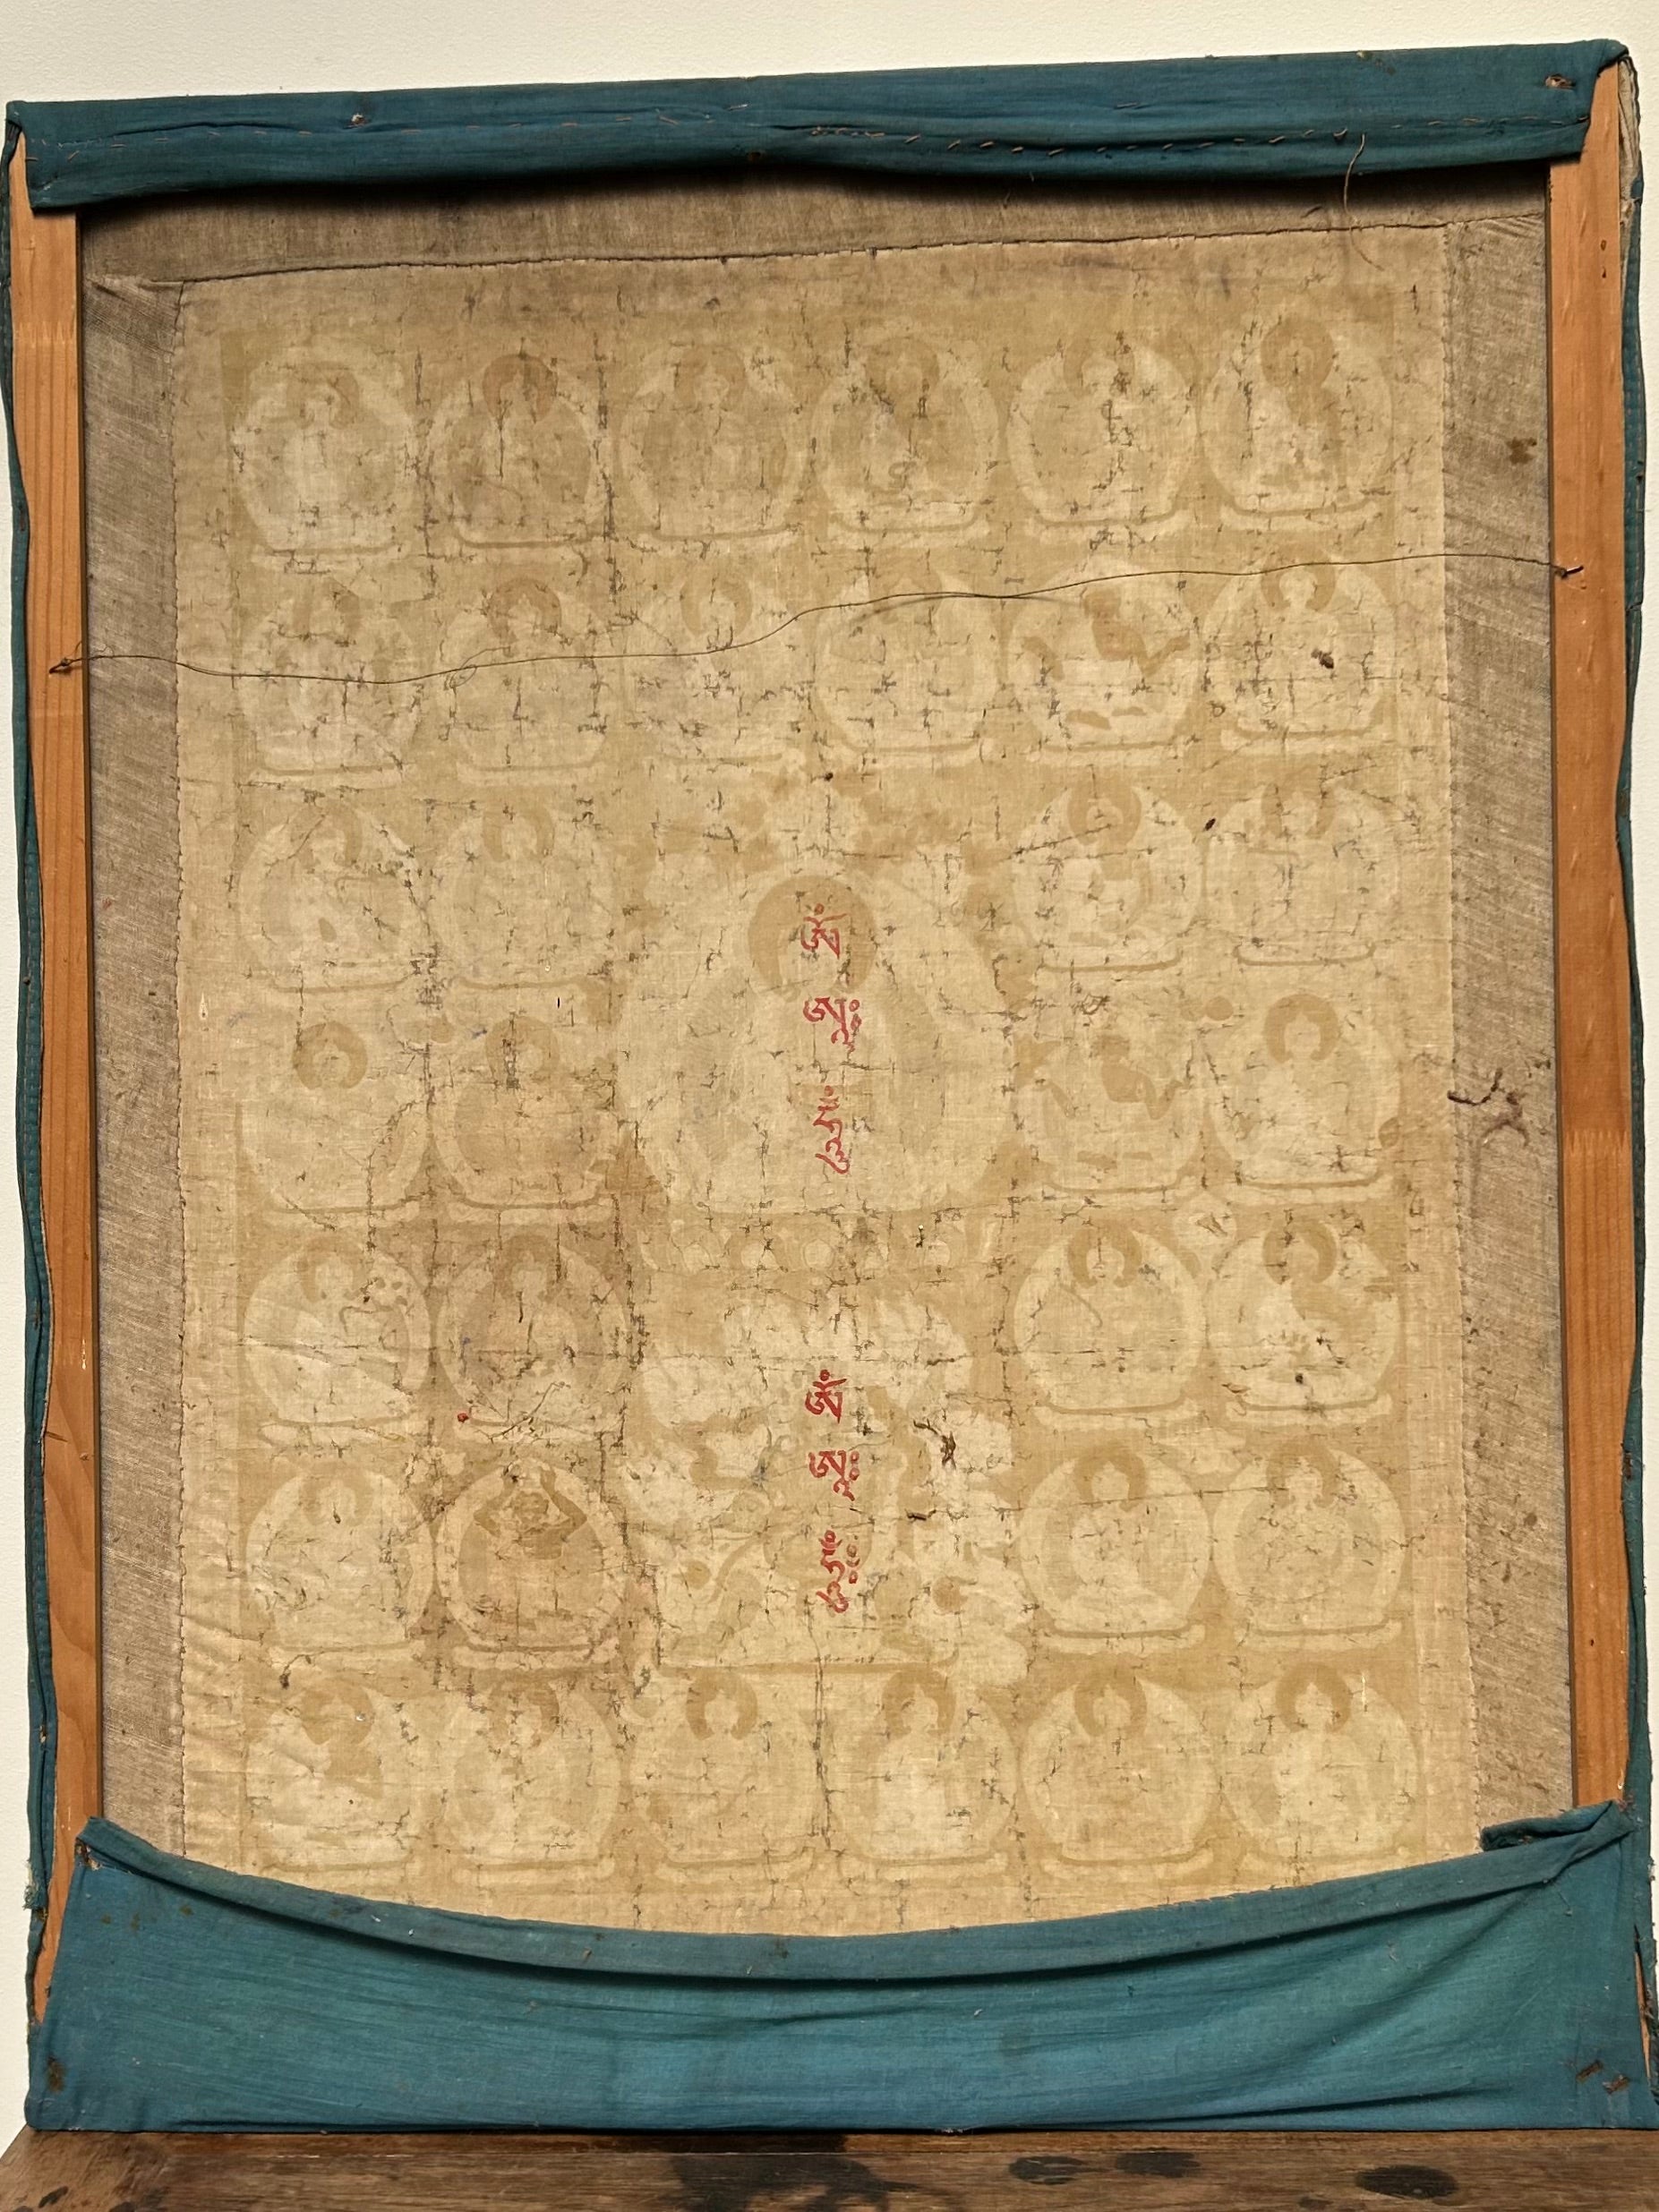 ཨོཾ
ཨཱཿ
ཧཱུྃ
ཨོཾ
ཨཱཿ
ཧཱུྃ